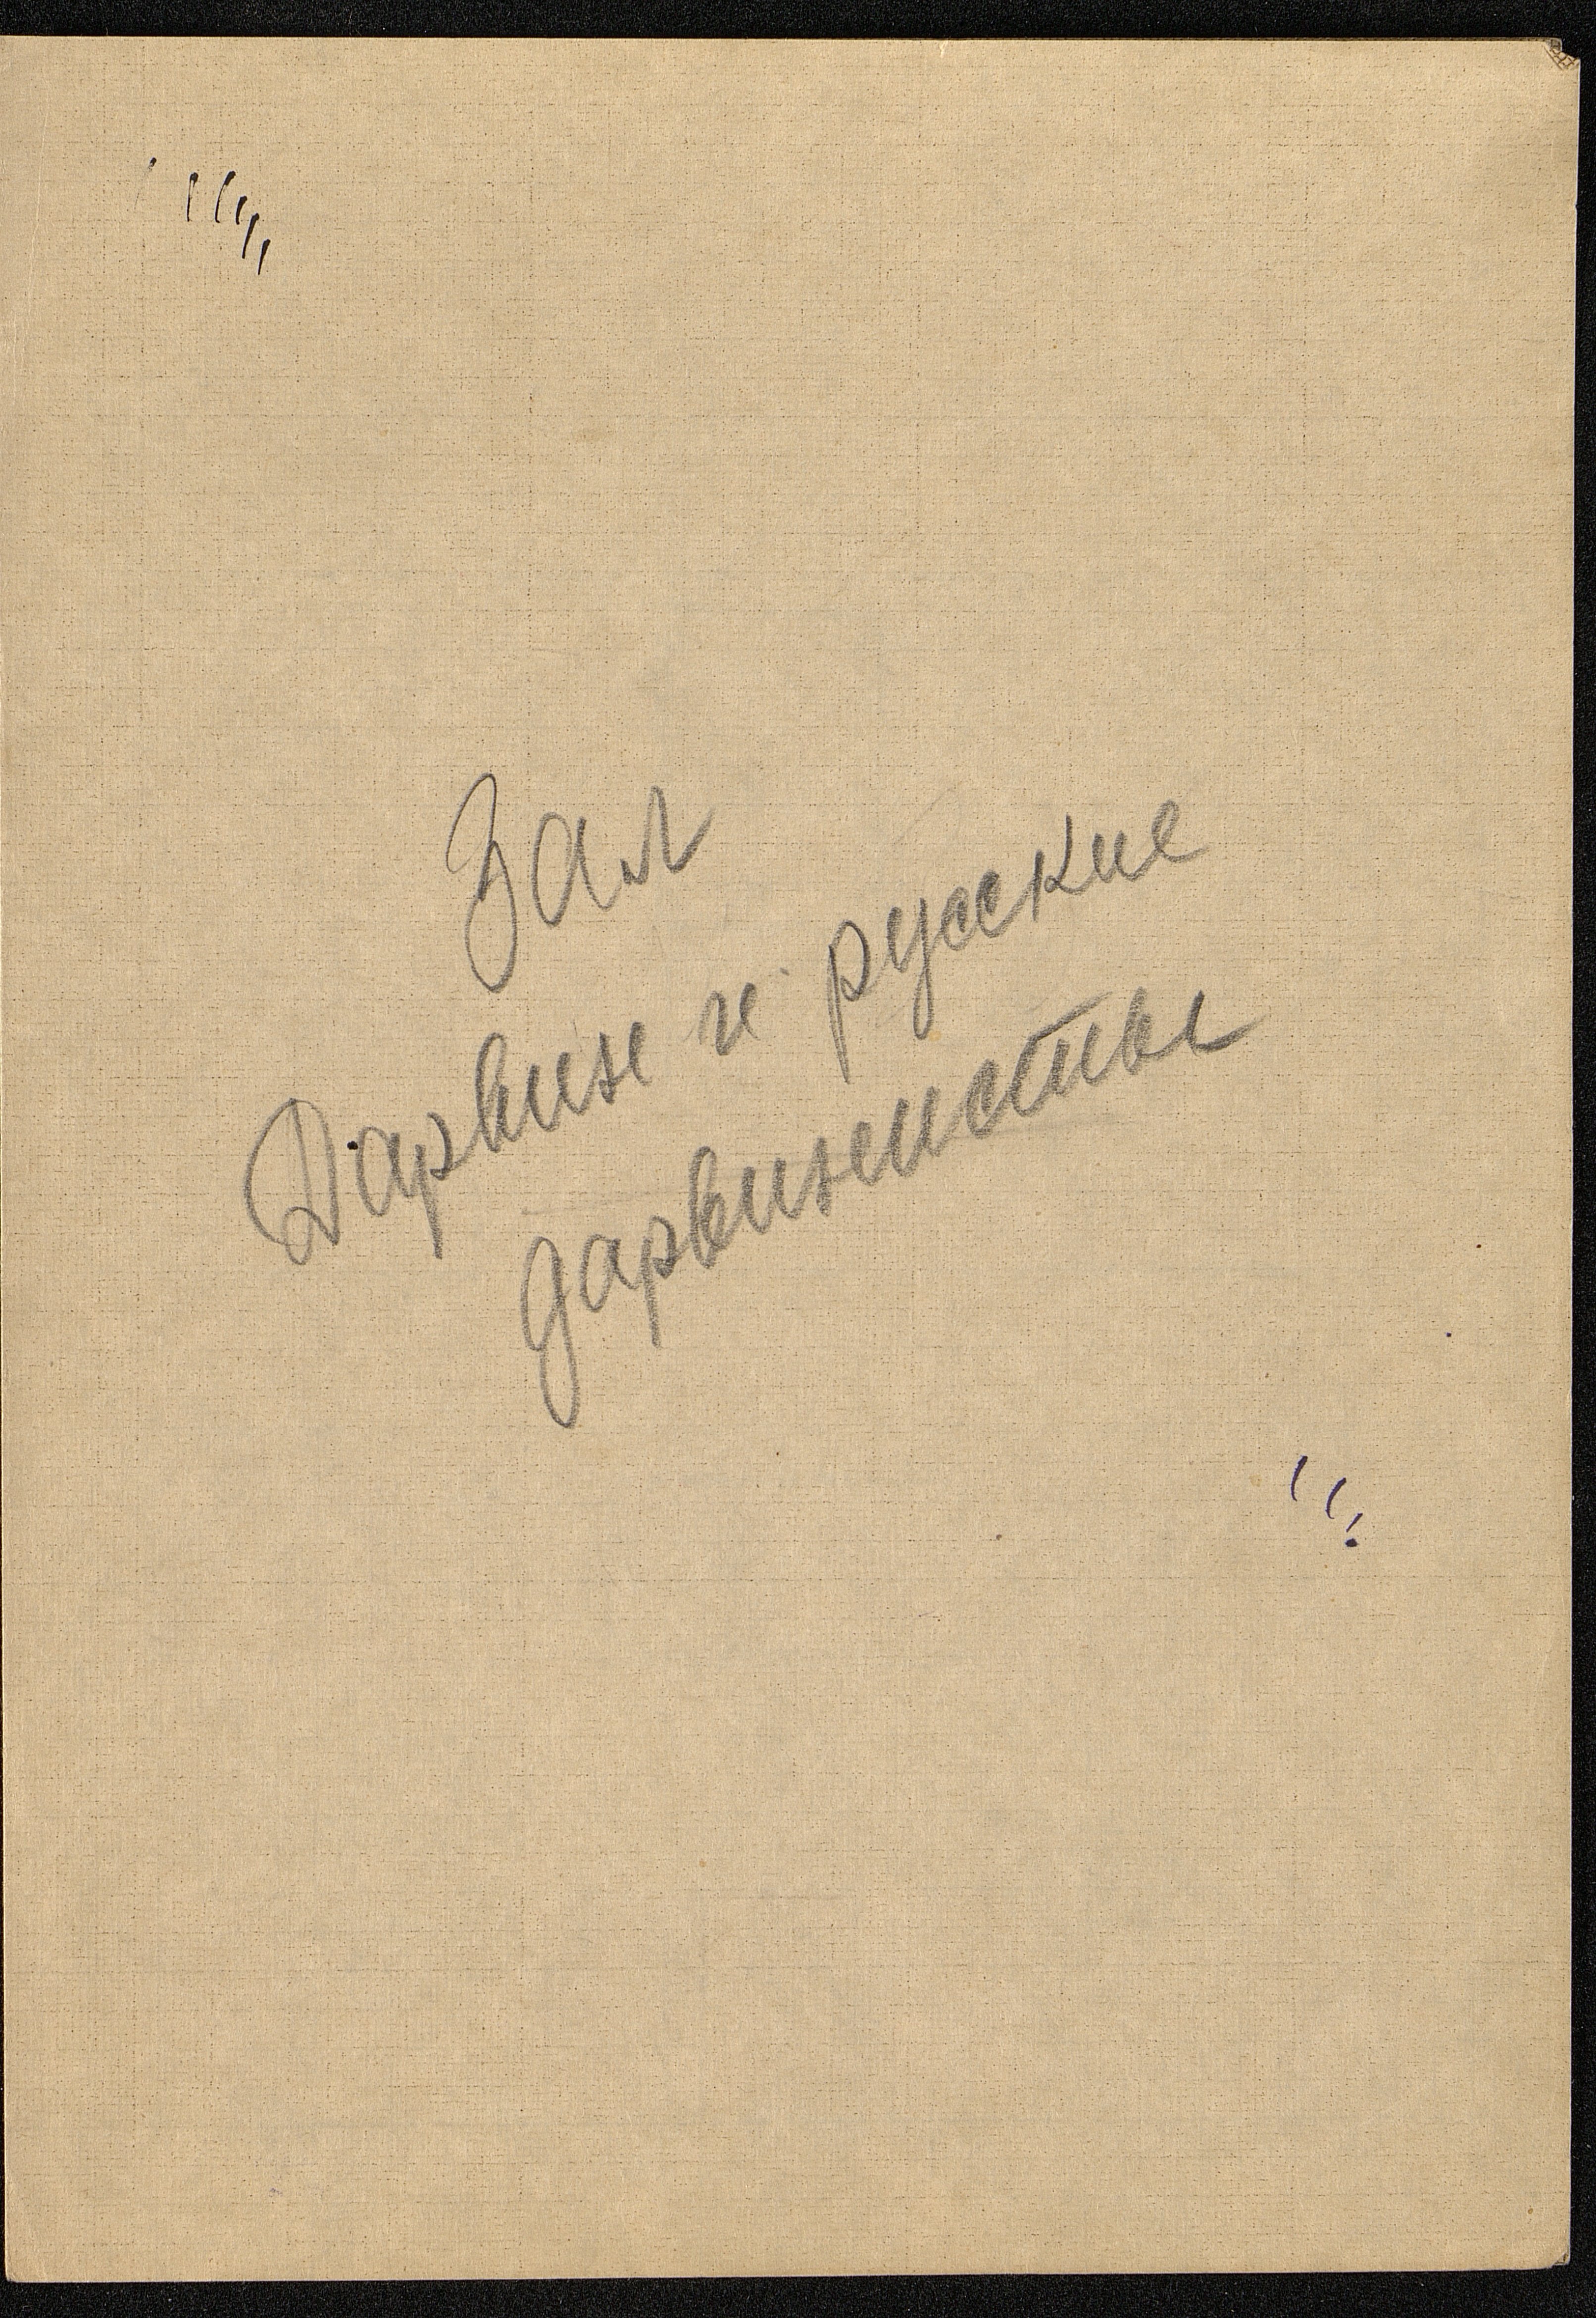 Зал
Дарвин и русские
дарвинисты